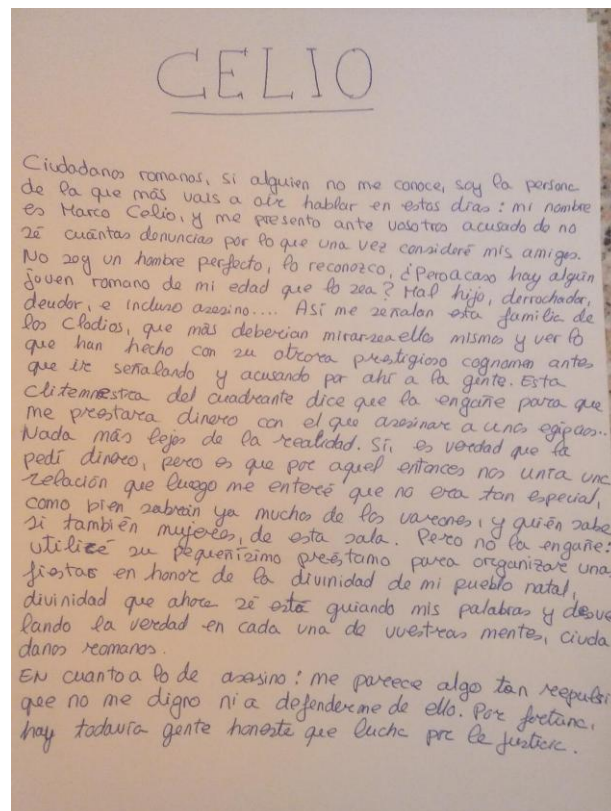 CELIO
Ciudadanos romanos, si alguien no me conoce, soy la persona
de la que más vais a oír hablar en estos días: mi nombre
es Marco Celio, y me presento ante vosotros acusado de no
sé cuántas denuncias por lo que una vez consideré mis amigos.
No soy un hombre perfecto, lo reconozco, ¿Pero acaso hay algún
joven romano de mi edad que lo sea? Mal hijo, derrochador,
deudor, e incluso asesino.... Así me señalan esta familia de
los Clodios, que más deberían mirarse a ellos mismos y ver lo
que han hecho con su otrora prestigioso cognomen antes
que ir señalando y acusando por ahí a la gente. Esta
Clitemnestra del cuadrante dice que la engañe para que
me prestara dinero con el que asesinar a unos egipcios..
Nada más lejos de la realidad. Sí, es verdad que la
pedí dinero, pero es que por aquel entonces nos unía una
relación que luego me enteré que no era tan especial,
como bien sabrán ya muchos de los varones, y quién sabe
si también mujeres, de esta sala. Pero no la engañe:
utilicé su pequeñísimo préstamo para organizar una
fiestas en honor de la divinidad de mi pueblo natal,
divinidad que ahora sé está guiando mis palabras y desve
lando la verdad en cada una de vuestras mentes, ciuda
danos romanos.
EN cuanto a lo de asesino: me parece algo tan repulsi
que no me digno ni a defenderme de ello. Por fortuna,
hay todavía gente honesta que lucha por la justicia.